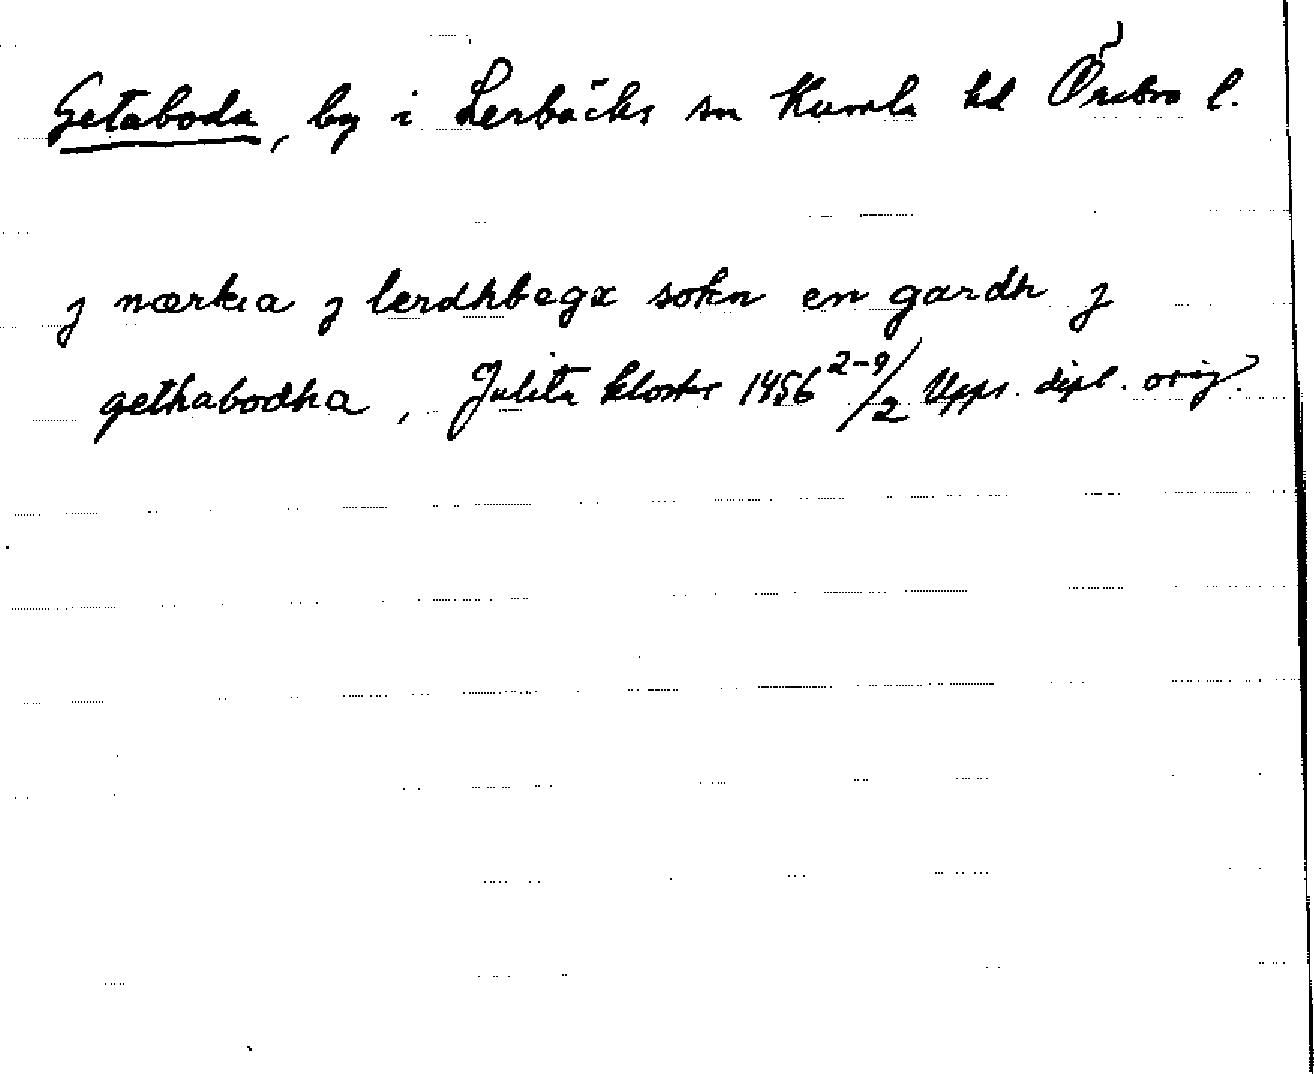 Getaboda, by i Lerbäcks sn Kumla hd Örebro l.
j nærkia j lerdhbegx sokn en gardh j
gethabodha, Julita kloster 1456 2-9/2 Upps. dipl. orig.